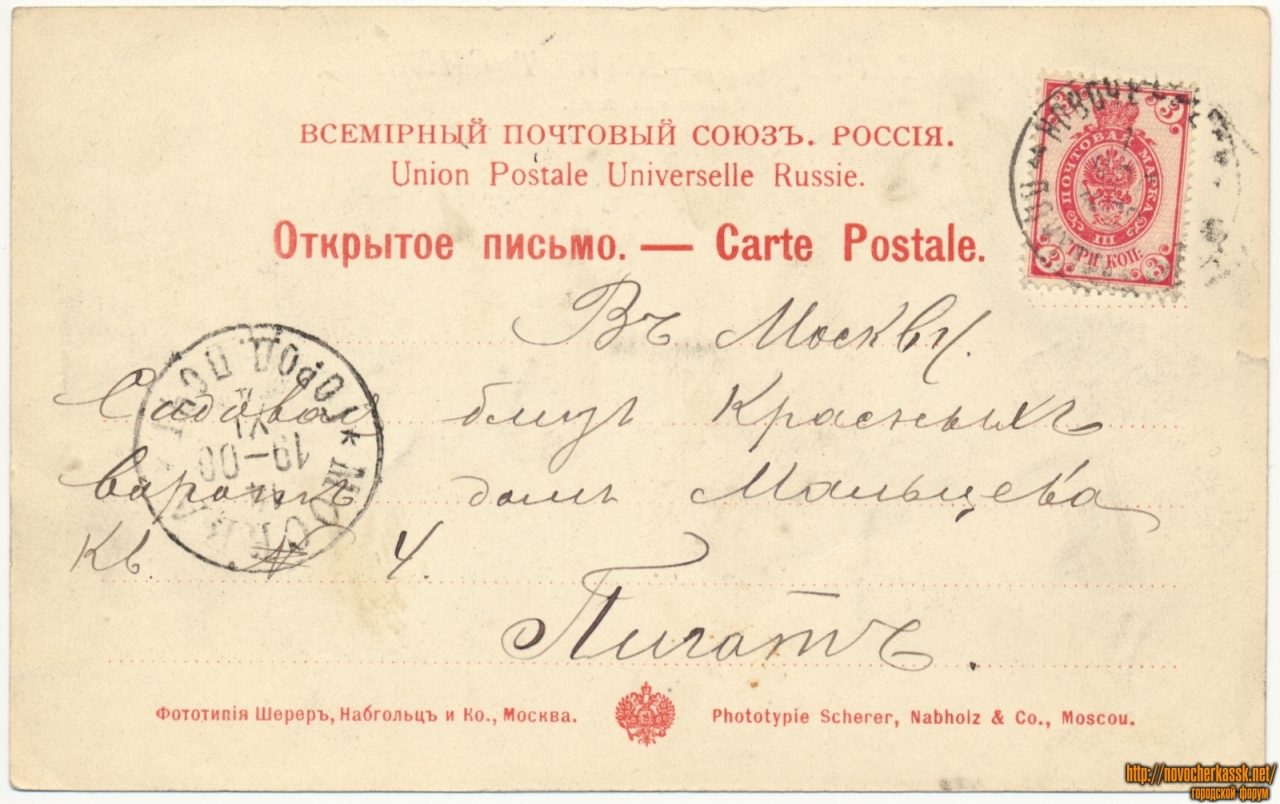 ВСЕМІРНЫЙ ПОЧТОВЫЙ СОЮЗЪ. РОССІЯ.
Union Postale Universelle Russie.
Открытое письмо. — Carte Postale.
3 3
ПОЧТОВАЯ МАРКА
III
ТРИ КОП.
3 3
Въ Москву.
Садовая близъ Красныхъ
воротъ домъ Мальцева
Кв. № 4.
Пигатъ.
МОСКВА
ГОРОД. ПОЧТ
VI
19-00
Фототипія Шереръ, Набгольцъ и Ко., Москва.
Phototypie Scherer, Nabholz & Co., Moscou.
http://novocherkassk.net/
городской форум